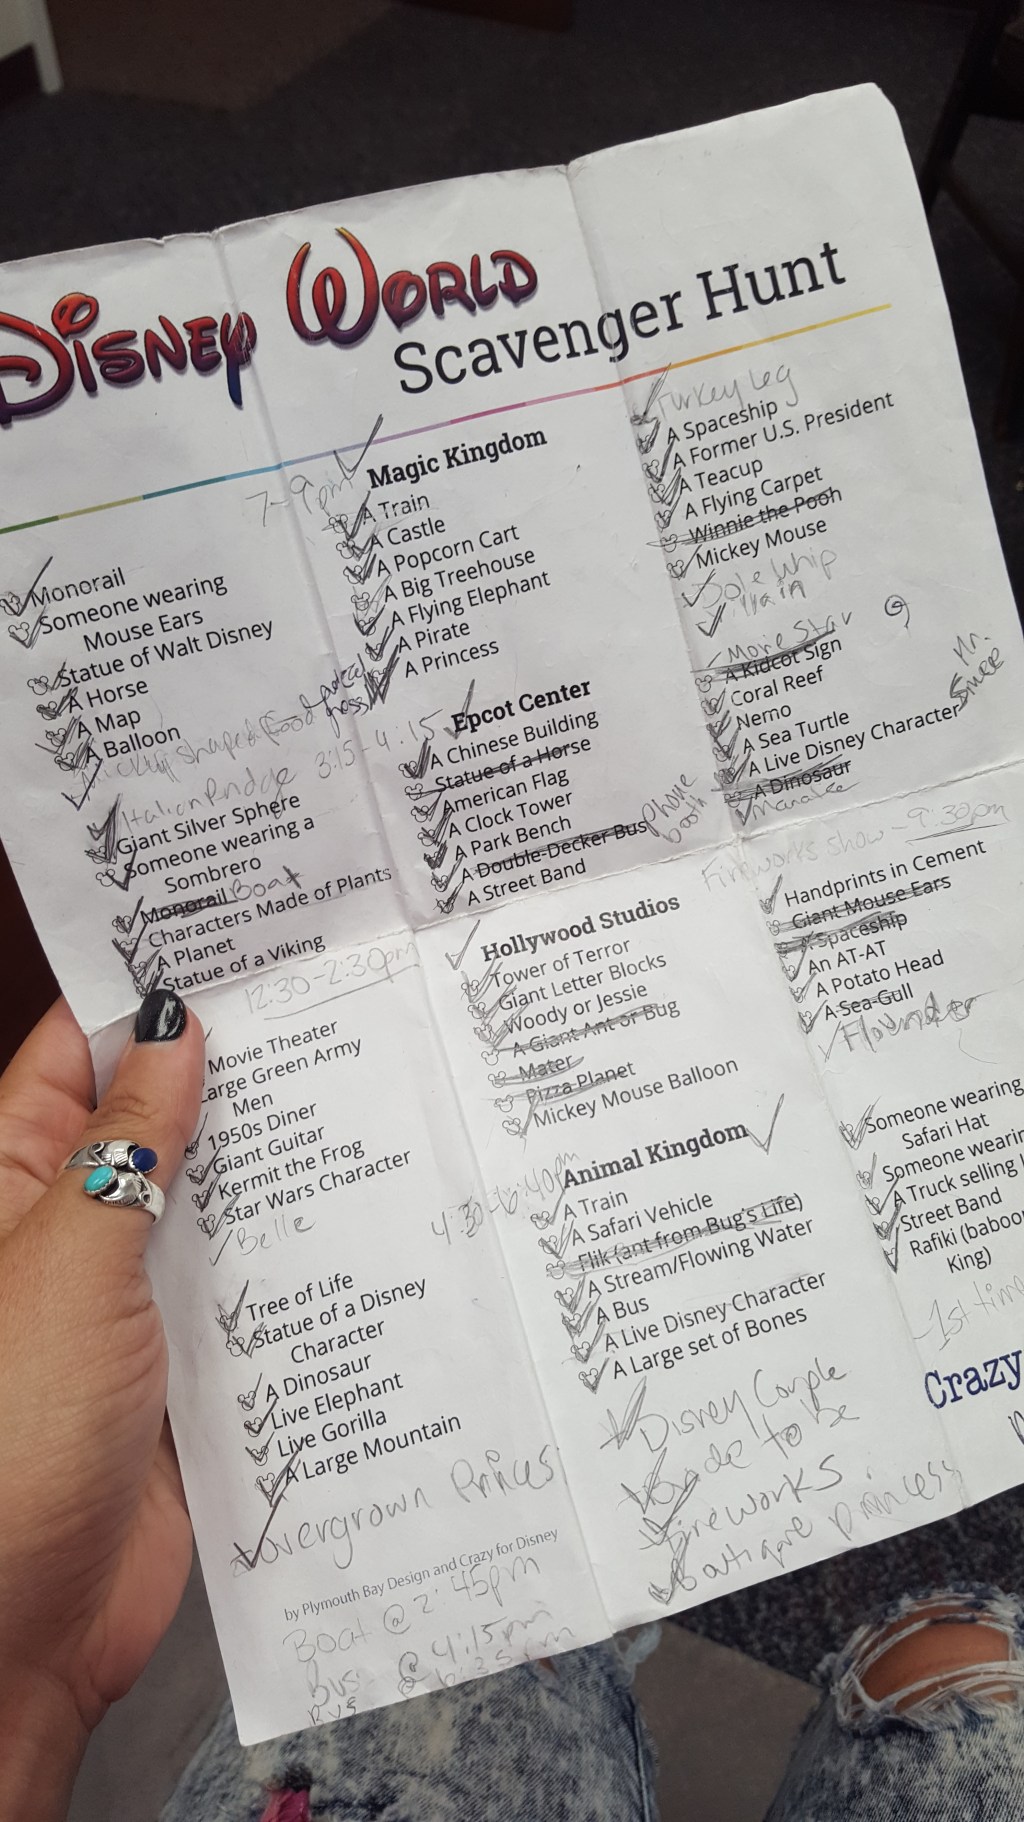 DISNEY WORLD
Scavenger Hunt
Monorail
Someone wearing
Mouse Ears
Statue of Walt Disney
A Horse
A Map
A Balloon
7-9pm
Magic Kingdom
A Train
A Castle
A Popcorn Cart
A Big Treehouse
A Flying Elephant
A Pirate
A Princess
Turkey Leg
A Spaceship
A Former U.S. President
A Teacup
A Flying Carpet
Winnie the Pooh
Mickey Mouse
Dole Whip
Rain
Italian Bridge
Giant Silver Sphere
Someone wearing a
Sombrero
Monorail Boat
Characters Made of Plants
A Planet
Statue of a Viking
3:15-4:15
Epcot Center
A Chinese Building
Statue of a Horse
American Flag
A Clock Tower
A Park Bench
A Double-Decker Bus phone booth
A Street Band
Movie Star
A Kidcot Sign
Coral Reef
Nemo
A Sea Turtle
A Live Disney Character Mr. Smee
A Dinosaur
Manatee
12:30-2:30pm
Movie Theater
Large Green Army
Men
1950s Diner
Giant Guitar
Kermit the Frog
Star Wars Character
Belle
Hollywood Studios
Tower of Terror
Giant Letter Blocks
Woody or Jessie
A Giant Ant or Bug
Mater
Pizza Planet
Mickey Mouse Balloon
Fireworks Show - 9:30pm
Handprints in Cement
Giant Mouse Ears
A Spaceship
An AT-AT
A Potato Head
A Sea Gull
Flounder
Tree of Life
Statue of a Disney
Character
A Dinosaur
Live Elephant
Live Gorilla
A Large Mountain
overgrown Princess
4:30-6:40pm
Animal Kingdom
A Train
A Safari Vehicle
Flik (ant from Bug's Life)
A Stream/Flowing Water
A Bus
A Live Disney Character
A Large set of Bones
Disney Couple
Bride to be
Fireworks
Boutique princess
Someone wearing
Safari Hat
Someone wearin
A Truck selling
Street Band
Rafiki (baboo
King)
-1st tim
Crazy
by Plymouth Bay Design and Crazy for Disney
Boat @ 2:45pm
Bus @ 4:15pm
Bus @ 6:35pm